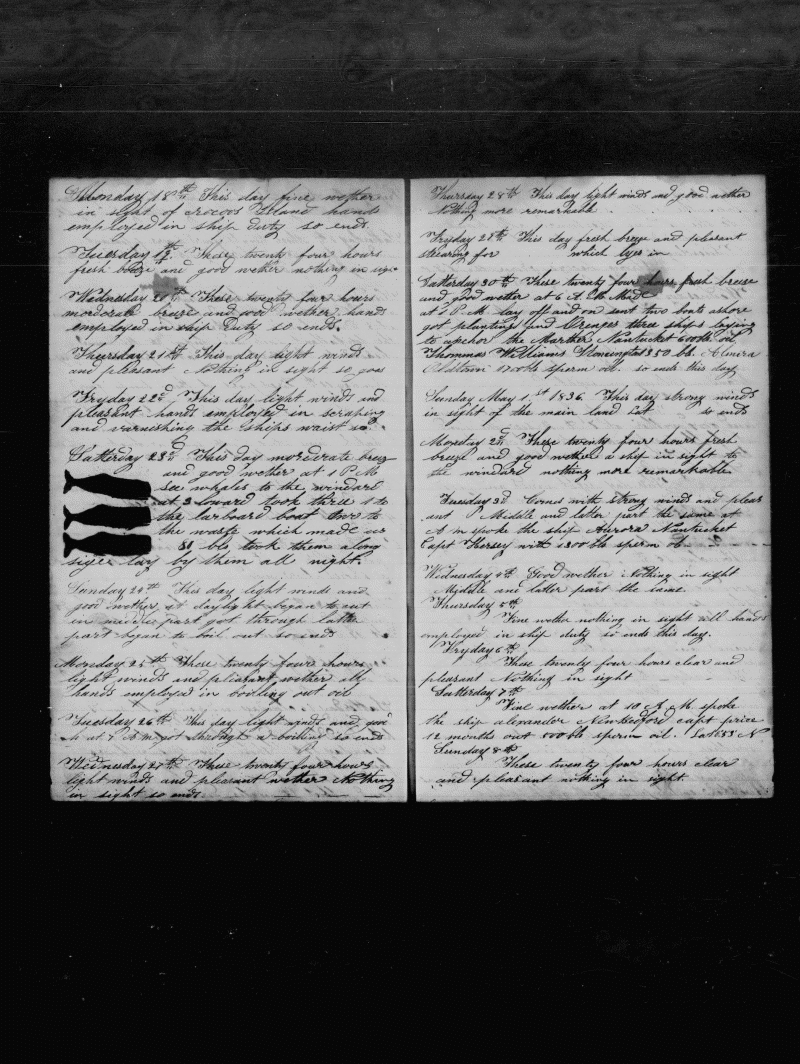 Monday 18th This day fine wether
in sight of Crocos Iland hands
employed in ship duty so ends
Tuesday 19th These twenty four hours
fresh breeze and good wether nothing in sight
Wednesday 20th These twenty four hours
morderate breeze and good wether hands
employed in ship Duty so ends.
Thursday 21st This day light winds
and pleasant Nothing in sight so goes
Fryday 22d This day light winds and
pleasant hands employed in scraping
and varnishing the ships waist
Satterday 23d This day morderate breeze
and good wether at 1 P M
see whales to the windard
at 3 loward took three 1 to
the larboard boat two to
the waste which made us
80 bls took them along
side lay by them all night.
Sunday 24th This day light winds and
good wether at daylight began to cut
in middle part got through latter
part began to boil out so ends
Monday 25th These twenty four hours
light winds and pleasant wether all
hands employed in boilling out oil
Tuesday 26th This day light winds and
at 7 A m got through a boiling so ends
Wednesday 27th These twenty four hours
light winds and pleasant wether Nothing
in sight so ends.
Thursday 28th This day light winds and good wether
Nothing more remarkable
Fryday 29th This day fresh breeze and pleasant
stearing for which lyes in
Satterday 30th These twenty four hours fresh breeze
and good wether at 6 A. M. Made
at 1 P M lay off and on sent two boats ashore
got plantins and Orenges three ships laying
to anchor the Marther Nantucket 600 bls oil,
Thommas Williams Stonington 1350 bls. Elmira
1700 bls sperm oil. so ends this day
Sunday May 1st 1836. This day strong winds
in sight of the main land Lat so ends
Monday 2d These twenty four hours fresh
breeze and good wether a ship in sight to
the windard nothing more remarkable
Tuesday 3d Comes with strong winds and pleas
ant P. Middle and latter part the same at
A m spoke the ship Aurora Nantucket
Capt Hersey with 1300 bls sperm oil
Wednesday 4th Good wether Nothing in sight
Middle and latter part the same
Thursday 5th
Fine wether nothing in sight all hands
employed in ship duty so ends this day.
Fryday 6th
These twenty four hours clear and
pleasant Nothing in sight
Satterday 7th
Fine wether at 10 A. M. spoke
the ship alexander Newbedford capt price
12 months out 500 bls sperm oil.
Sunday 8th
These twenty four hours clear
and pleasant nothing in sight